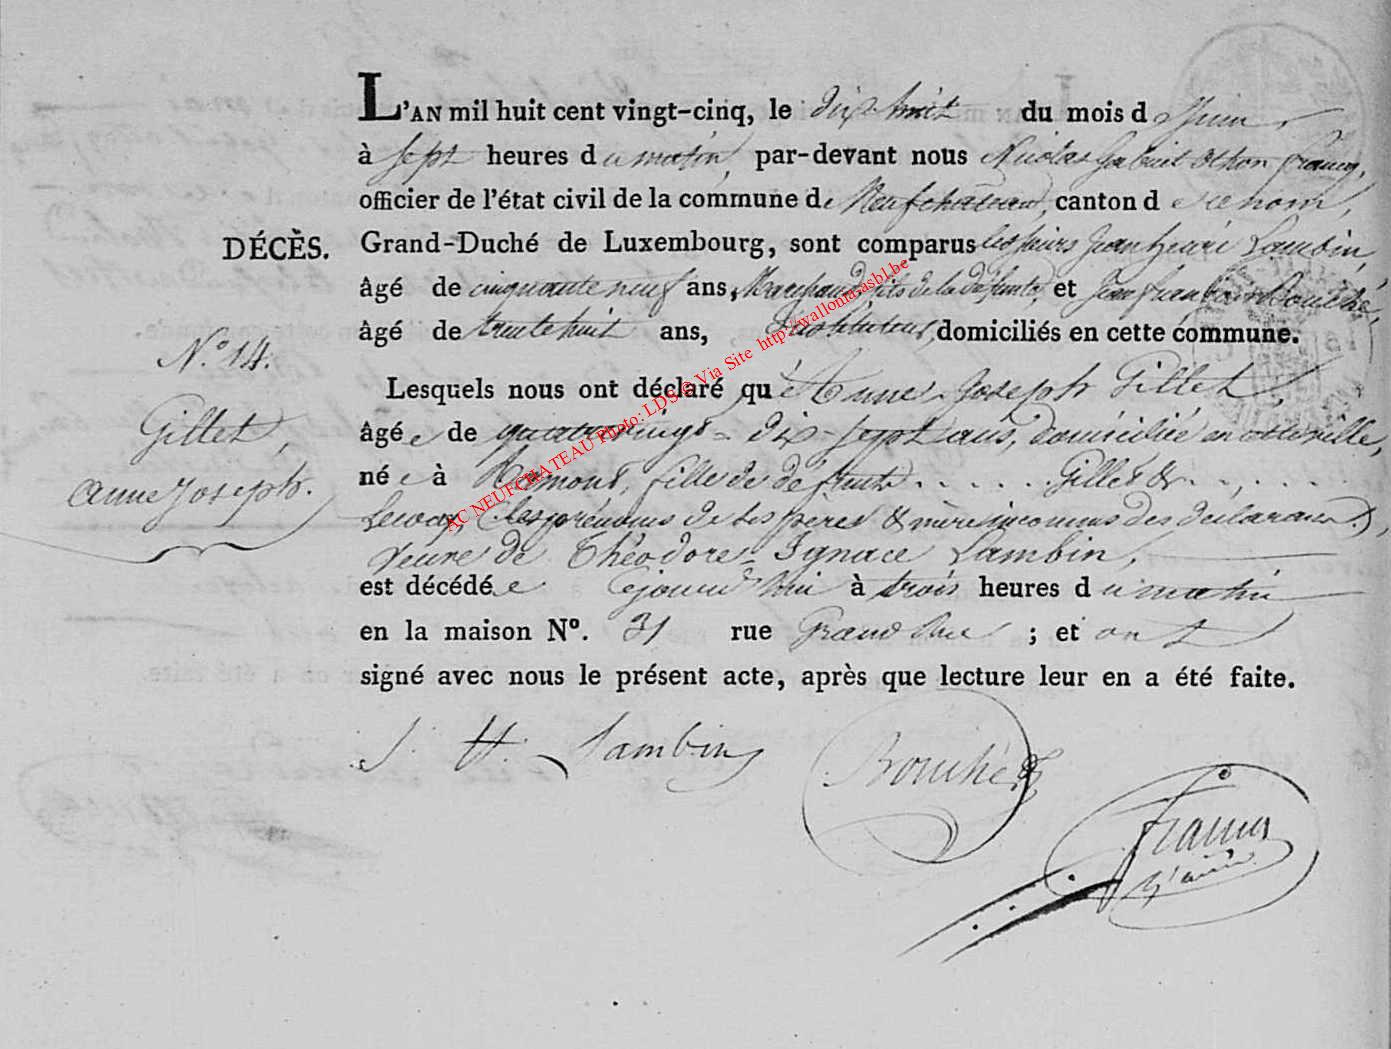 L'AN mil huit cent vingt-cinq, le dix huit du mois de Juin,
à sept heures du matin, par-devant nous Nicolas Gabriel Othon Francq,
officier de l'état civil de la commune de Neufchateau, canton de ce nom,
DÉCÈS.
Grand-Duché de Luxembourg, sont comparus les sieurs Jean henri Lambin,
âgé de cinquante neuf ans, Marchand, fils de la défunte, et Jean françois Bouché,
âgé de trente huit ans, Instituteur, domiciliés en cette commune.
N.º 14.
Gillet,
anne Joseph.
Lesquels nous ont déclaré qu'Anne Joseph Gillet,
âgée de quatrevingt-dix-sept ans, domiciliée en cette ville,
née à fille de défunts . . . . . . Gillet & . . . . . .
(les prénoms de ses pere & mère inconnus des déclarans),
veuve de Théodore-Ignace Lambin,
est décédée cejourd'hui à trois heures du matin
en la maison Nº. 31 rue Grand Rue ; et ont
signé avec nous le présent acte, après que lecture leur en a été faite.
J. H. Lambin
Bouché
Francq
AC NEUFCHATEAU Photo: LDS © Via Site http://wallonia-asbl.be